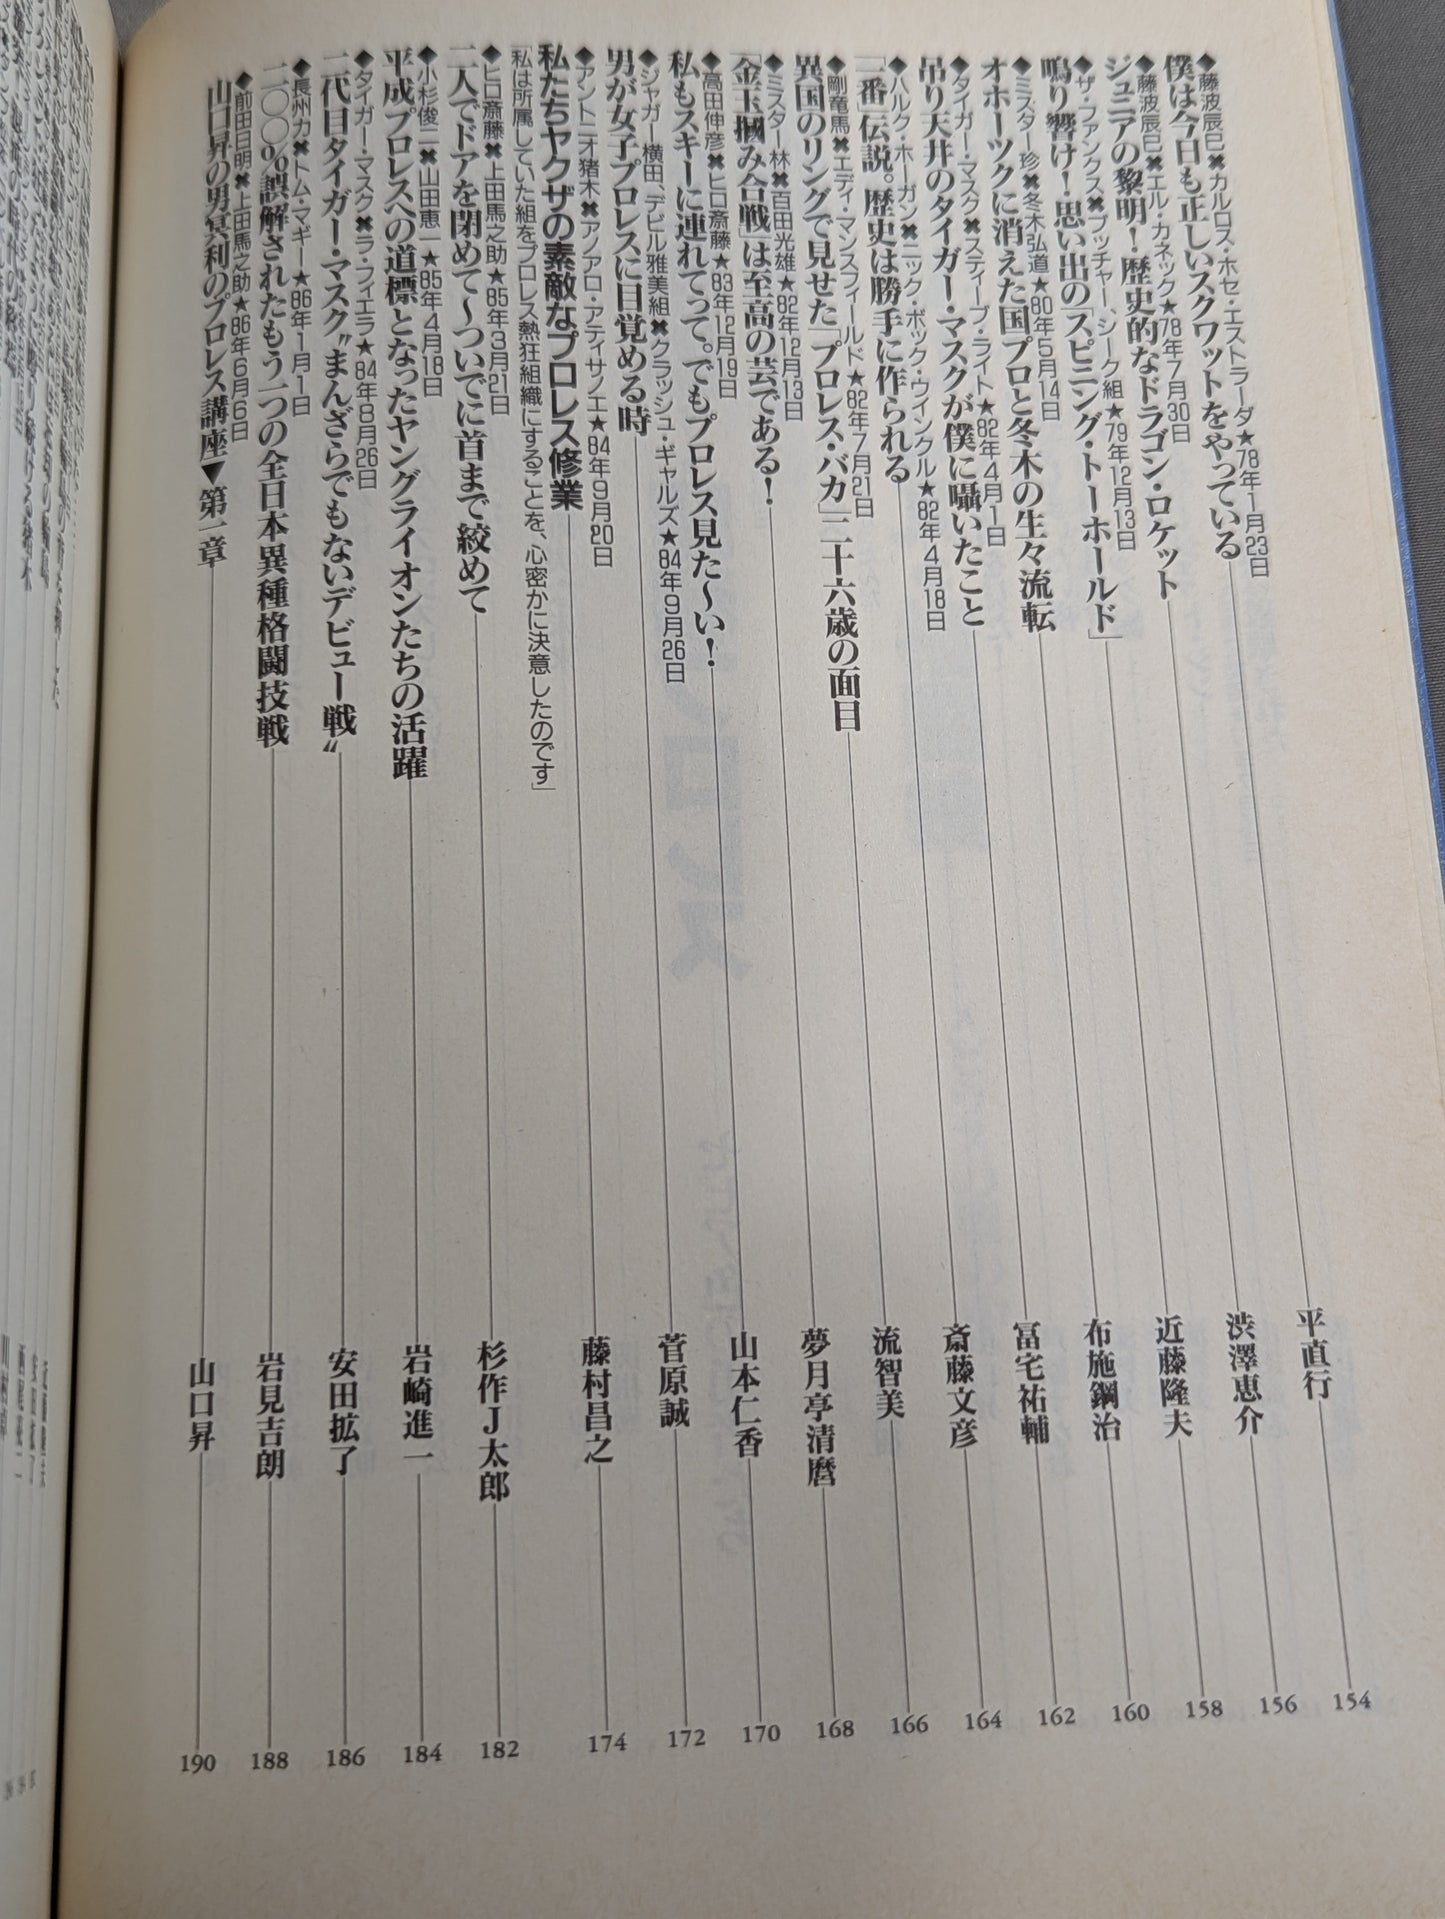 ◆藤波辰巳✖カルロス・ホセ・エストラーダ★78年1月23日
僕は今日も正しいスクワットをやっている 平直行 154
◆藤波辰巳✖エル・カネック★78年7月30日
ジュニアの黎明!歴史的なドラゴン・ロケット 渋澤恵介 156
◆ザ・ファンクス✖ブッチャー、シーク組★79年12月13日
鳴り響け!思い出の「スピニング・トーホールド」 近藤隆夫 158
◆ミスター珍✖冬木弘道★80年5月14日
オホーツクに消えた国プロと冬木の生々流転 布施鋼治 160
◆タイガー・マスク✖スティーブ・ライト★82年4月1日
吊り天井のタイガー・マスクが僕に囁いたこと 冨宅祐輔 162
◆ハルク・ホーガン✖ニック・ボック・ウインクル★82年4月18日
「一番」伝説。歴史は勝手に作られる 斎藤文彦 164
◆剛竜馬✖エディ・マンスフィールド★82年7月21日
異国のリングで見せた「プロレス・バカ」二十六歳の面目 流智美 166
◆ミスター林✖百田光雄★82年12月13日
「金玉摑み合戦」は至高の芸である! 夢月亭清麿 168
◆高田伸彦✖ヒロ斎藤★83年12月19日
私もスキーに連れてって。でもプロレス見た〜い! 山本仁香 170
◆ジャガー横田、デビル雅美組✖クラッシュ・ギャルズ★84年9月26日
男が女子プロレスに目覚める時 菅原誠 172
◆アントニオ猪木✖アノアロ・アティサノエ★84年9月20日
私たちヤクザの素敵なプロレス修業 藤村昌之 174
「私は所属していた組をプロレス熱狂組織にすることを、心密かに決意したのです」
◆ヒロ斎藤✖上田馬之助★85年3月21日
二人でドアを閉めて〜ついでに首まで絞めて 杉作J太郎 182
◆小杉俊二✖山田恵一★85年4月18日
平成プロレスへの道標となったヤングライオンたちの活躍 岩崎進一 184
◆タイガー・マスク✖ラ・フィエラ★84年8月26日
二代目タイガー・マスク〝まんざらでもないデビュー戦〟 安田拡了 186
◆長州力✖トム・マギー★86年1月1日
二〇〇%誤解されたもう一つの全日本異種格闘技戦 岩見吉朗 188
◆前田日明✖上田馬之助★86年6月6日
山口昇の男冥利のプロレス講座▼第一章 山口昇 190